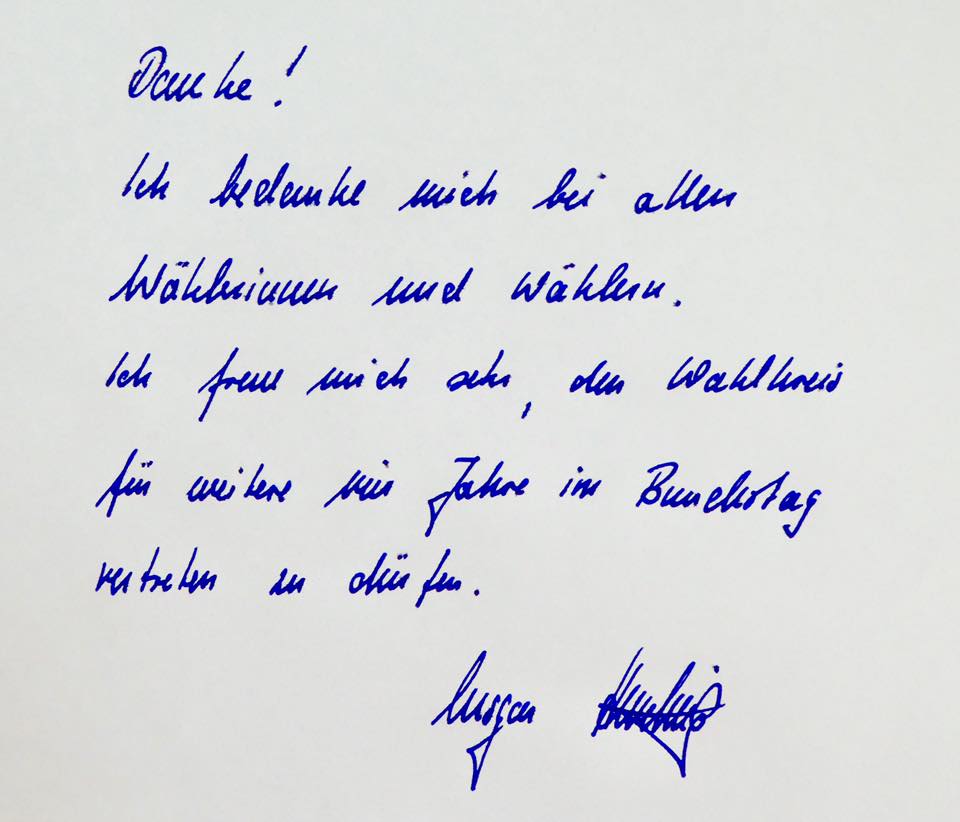 Danke!
Ich bedanke mich bei allen
Wählerinnen und Wählern.
Ich freue mich sehr, den Wahlkreis
für weitere vier Jahre im Bundestag
vertreten zu dürfen.